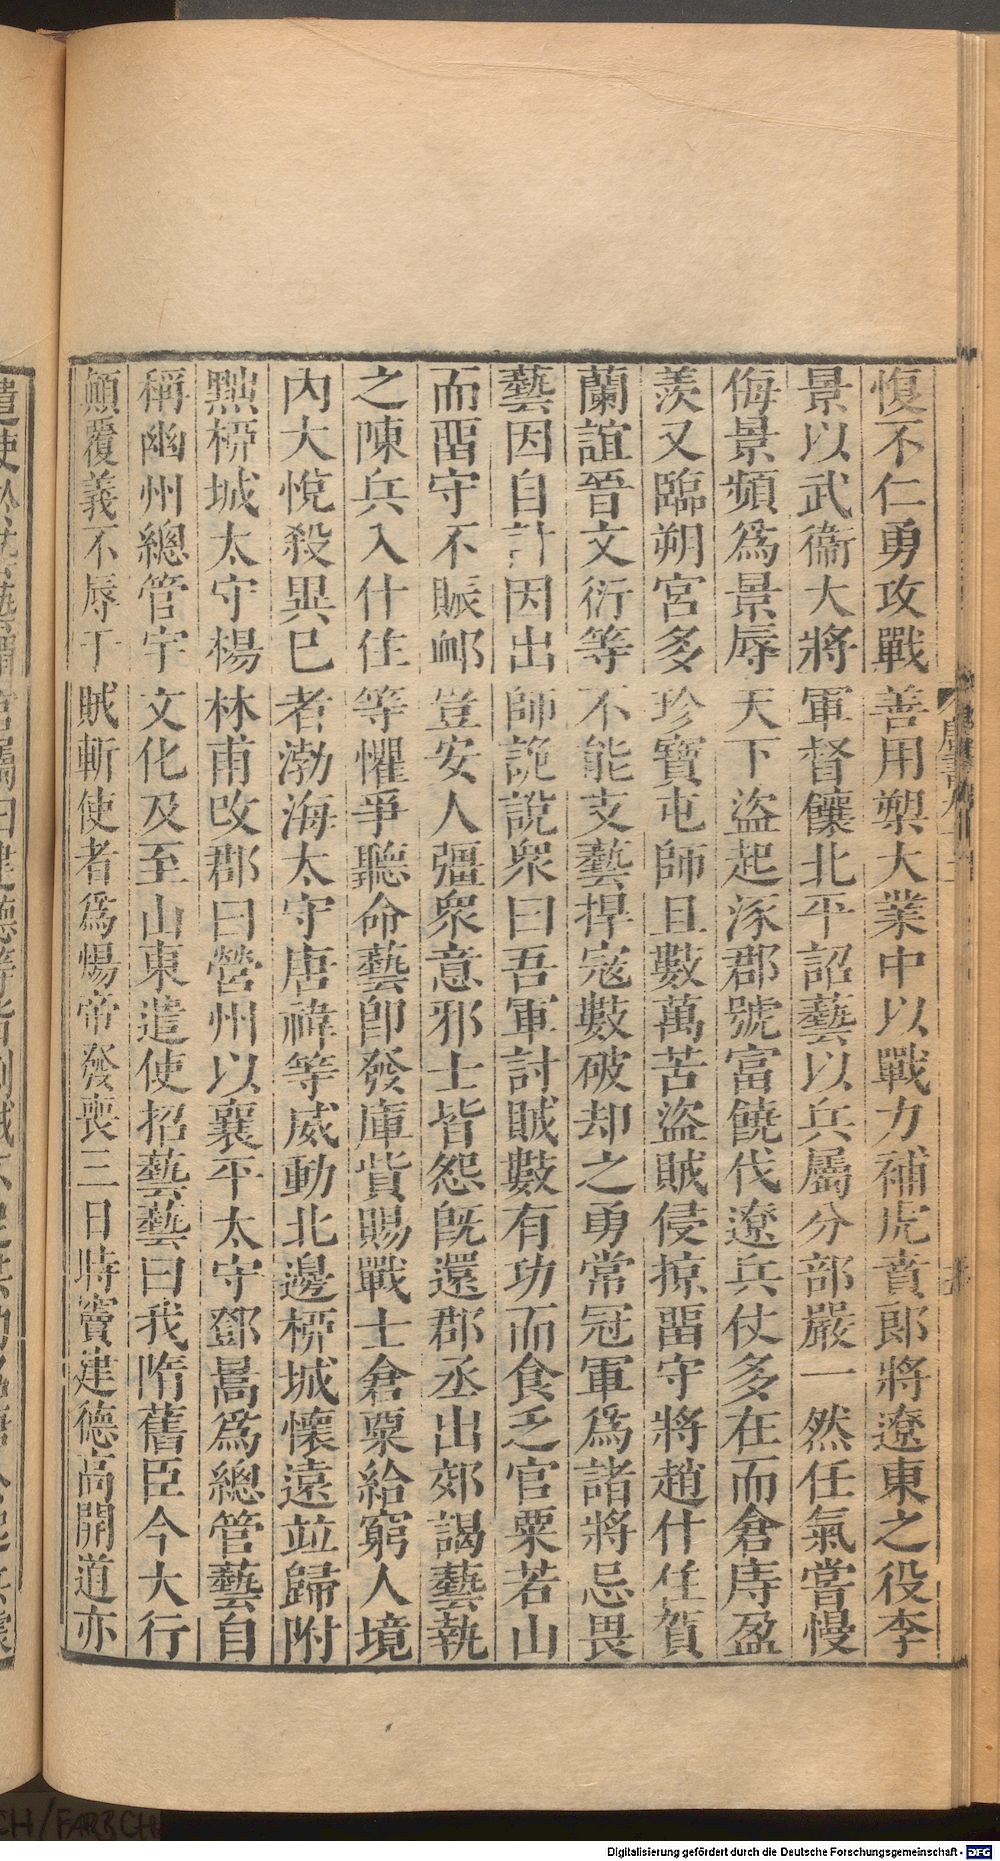 愎不仁勇攻戰善用槊大業中以戰力補虎賁郎將遼東之役李
景以武衞大將軍督饟北平詔藝以兵屬分部嚴一然任氣嘗慢
侮景頻爲景辱天下盜起涿郡號富饒伐遼兵仗多在而倉庤盈
羨又臨朔宮多珍寶屯師且數萬苦盜賊侵掠畱守將趙什住賀
蘭誼晉文衍等不能支藝捍寇數破却之勇常冠軍爲諸將忌畏
藝因自計因出師詭說衆曰吾軍討賊數有功而食乏官粟若山
而畱守不賑衈豈安人彊衆意邪士皆怨旣還郡丞出郊謁藝執
之陳兵入什住等懼爭聽命藝卽發庫貲賜戰士倉粟給窮人境
內大悅殺異已者渤海太守唐禕等威動北邊桺城懷遠竝歸附
黜桺城太守楊林甫改郡曰營州以襄平太守鄧暠爲總管藝自
稱幽州總管宇文化及至山東遣使招藝藝曰我隋舊臣今大行
顛覆義不辱于賊斬使者爲煬帝發喪三日時竇建德高開道亦
Digitalisierung gefördert durch die Deutsche Forschungsgemeinschaft - DFG